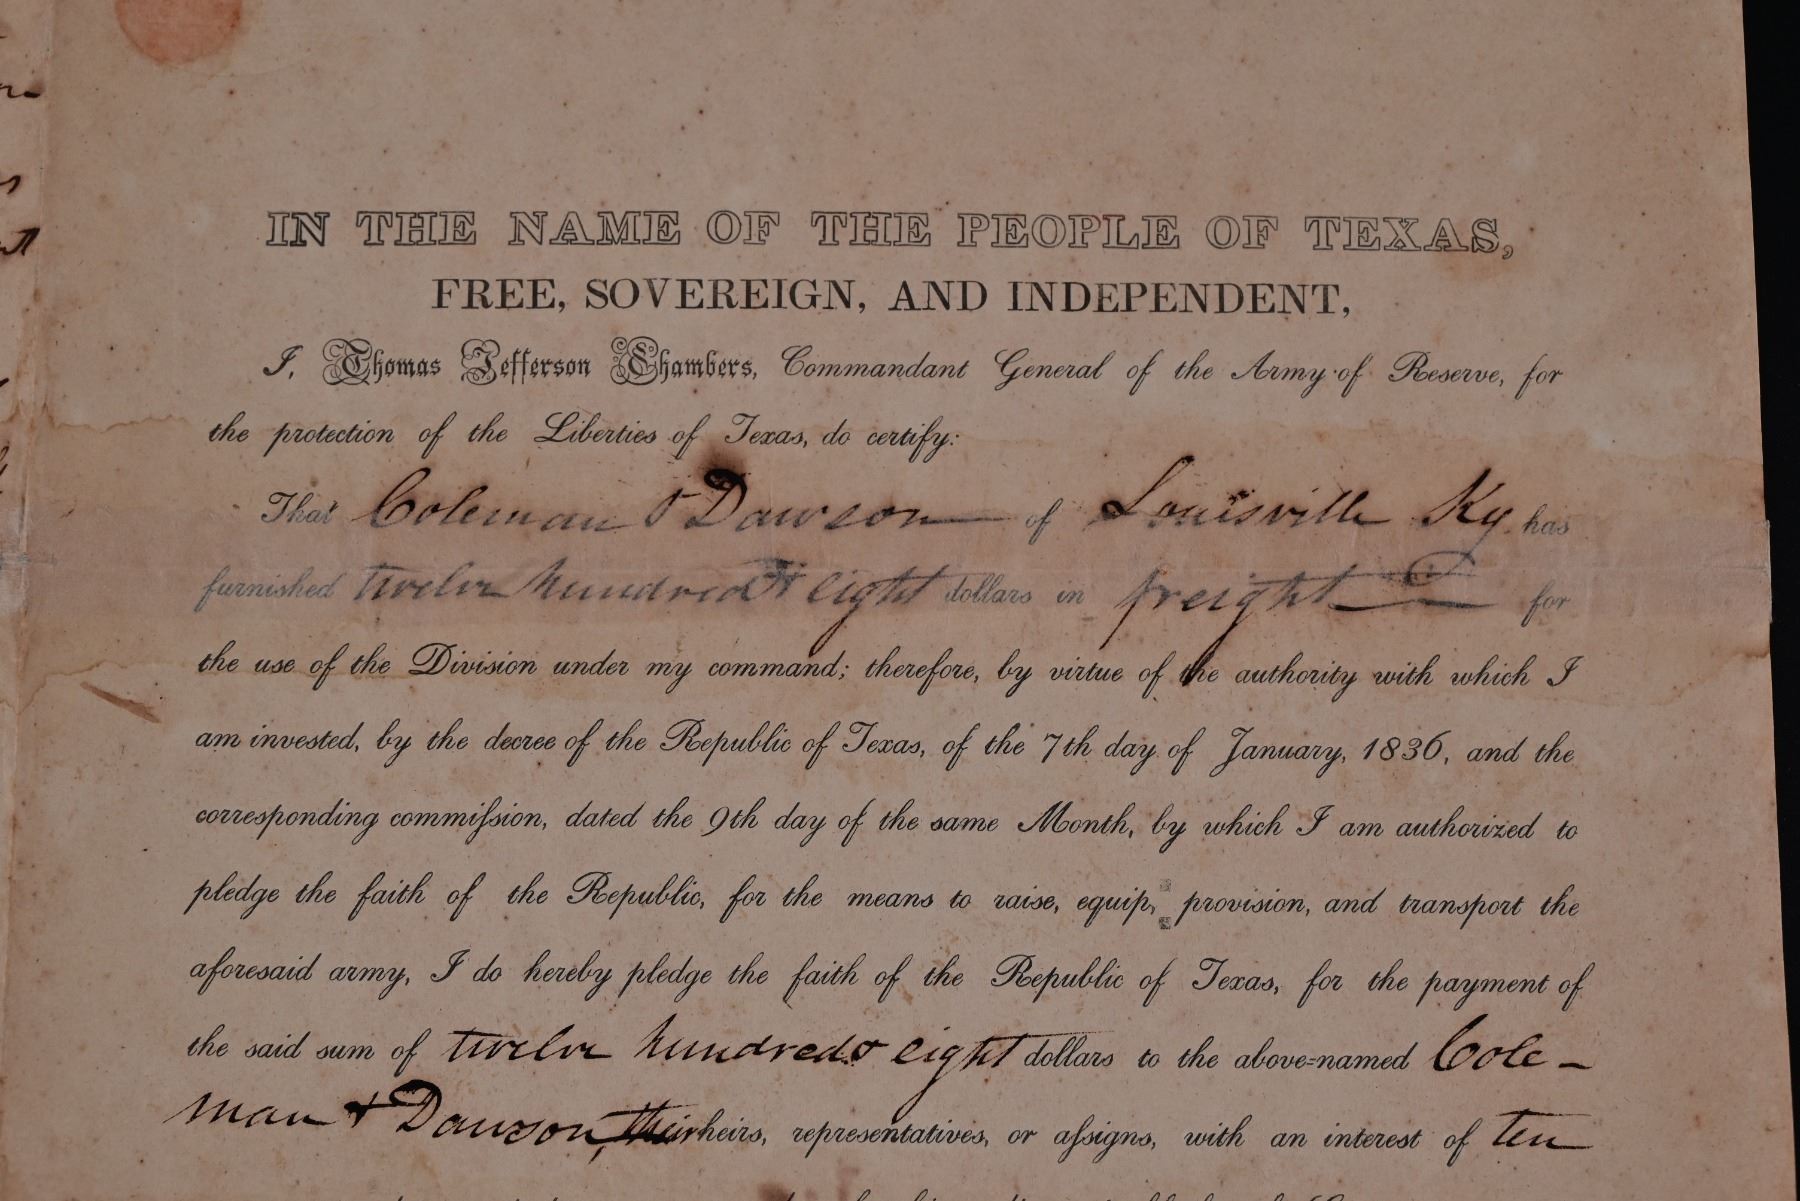 IN THE NAME OF THE PEOPLE OF TEXAS,
FREE, SOVEREIGN, AND INDEPENDENT,
I, Thomas Jefferson Chambers, Commandant General of the Army of Reserve, for
the protection of the Liberties of Texas, do certify:
That Coleman & Dawson of Louisville Ky has
furnished twelve hundred & eight dollars in freight for
the use of the Division under my command; therefore, by virtue of the authority with which I
am invested, by the decree of the Republic of Texas, of the 7th day of January, 1836, and the
corresponding commiſsion, dated the 9th day of the same Month, by which I am authorized to
pledge the faith of the Republic, for the means to raise, equip, provision, and transport the
aforesaid army, I do hereby pledge the faith of the Republic of Texas, for the payment of
the said sum of twelve hundred & eight dollars to the above=named Cole-
man & Dawson, their heirs, representatives, or aſsigns, with an interest of ten